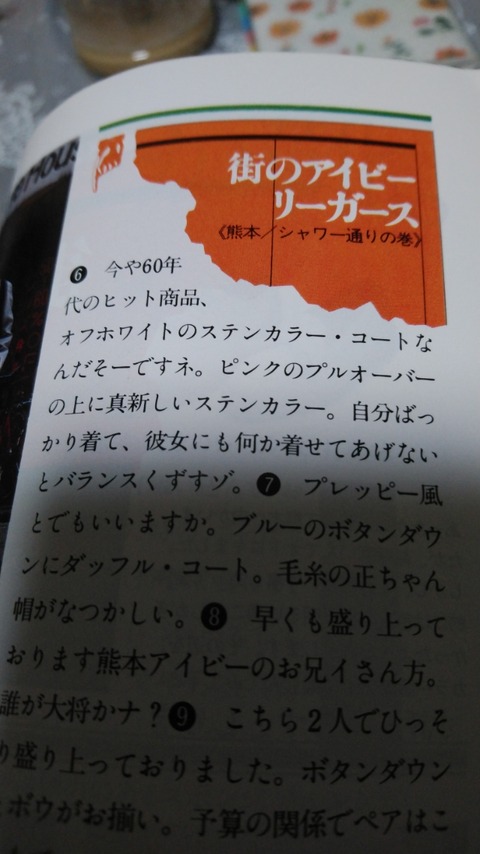 街のアイビー
リーガース
《熊本／シャワー通りの巻》
❻ 今や60年
代のヒット商品、
オフホワイトのステンカラー・コートな
んだそーですネ。ピンクのプルオーバー
の上に真新しいステンカラー。自分ばっ
かり着て、彼女にも何か着せてあげない
とバランスくずすゾ。❼ プレッピー風
とでもいいますか。ブルーのボタンダウ
ンにダッフル・コート。毛糸の正ちゃん
帽がなつかしい。❽ 早くも盛り上って
おります熊本アイビーのお兄イさん方。
誰が大将かナ？❾ こちら2人でひっそ
り盛り上っておりました。ボタンダウン
とボウがお揃い。予算の関係でペアはこ